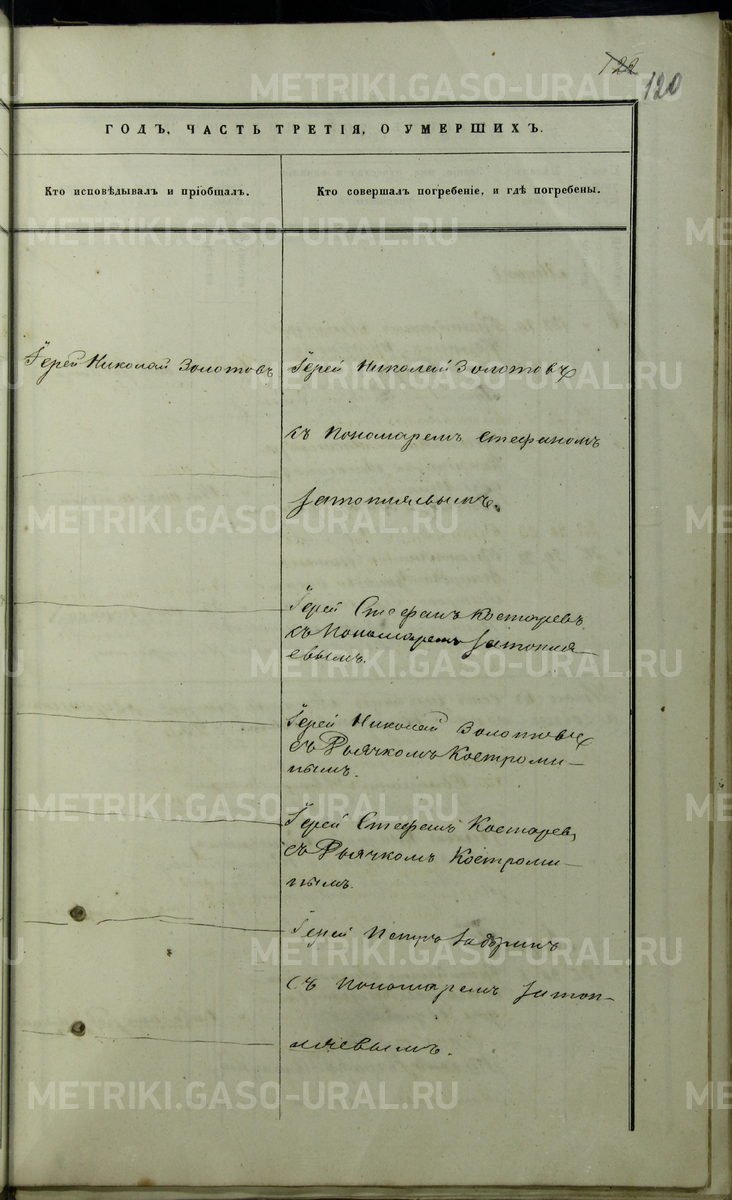 122
120
ГОДЪ, ЧАСТЬ ТРЕТІЯ, О УМЕРШИХЪ.
Кто исповѣдывалъ и пріобщалъ.
Кто совершалъ погребеніе, и гдѣ погребены.
Іерей Николай Золотовъ
Іерей Николай Золотовъ
съ Пономаремъ Стефаномъ
Затопляевымъ.
Іерей Стефанъ Костаревъ
съ Пономаремъ Затопля-
евымъ.
Іерей Николай Золотовъ
съ Дьячкомъ Костроми-
нымъ.
Іерей Стефанъ Костаревъ
съ Дьячкомъ Костроми-
нымъ.
Іерей Петръ
съ Пономаремъ Затоп-
ляевымъ.
METRIKI.GASO-URAL.RU